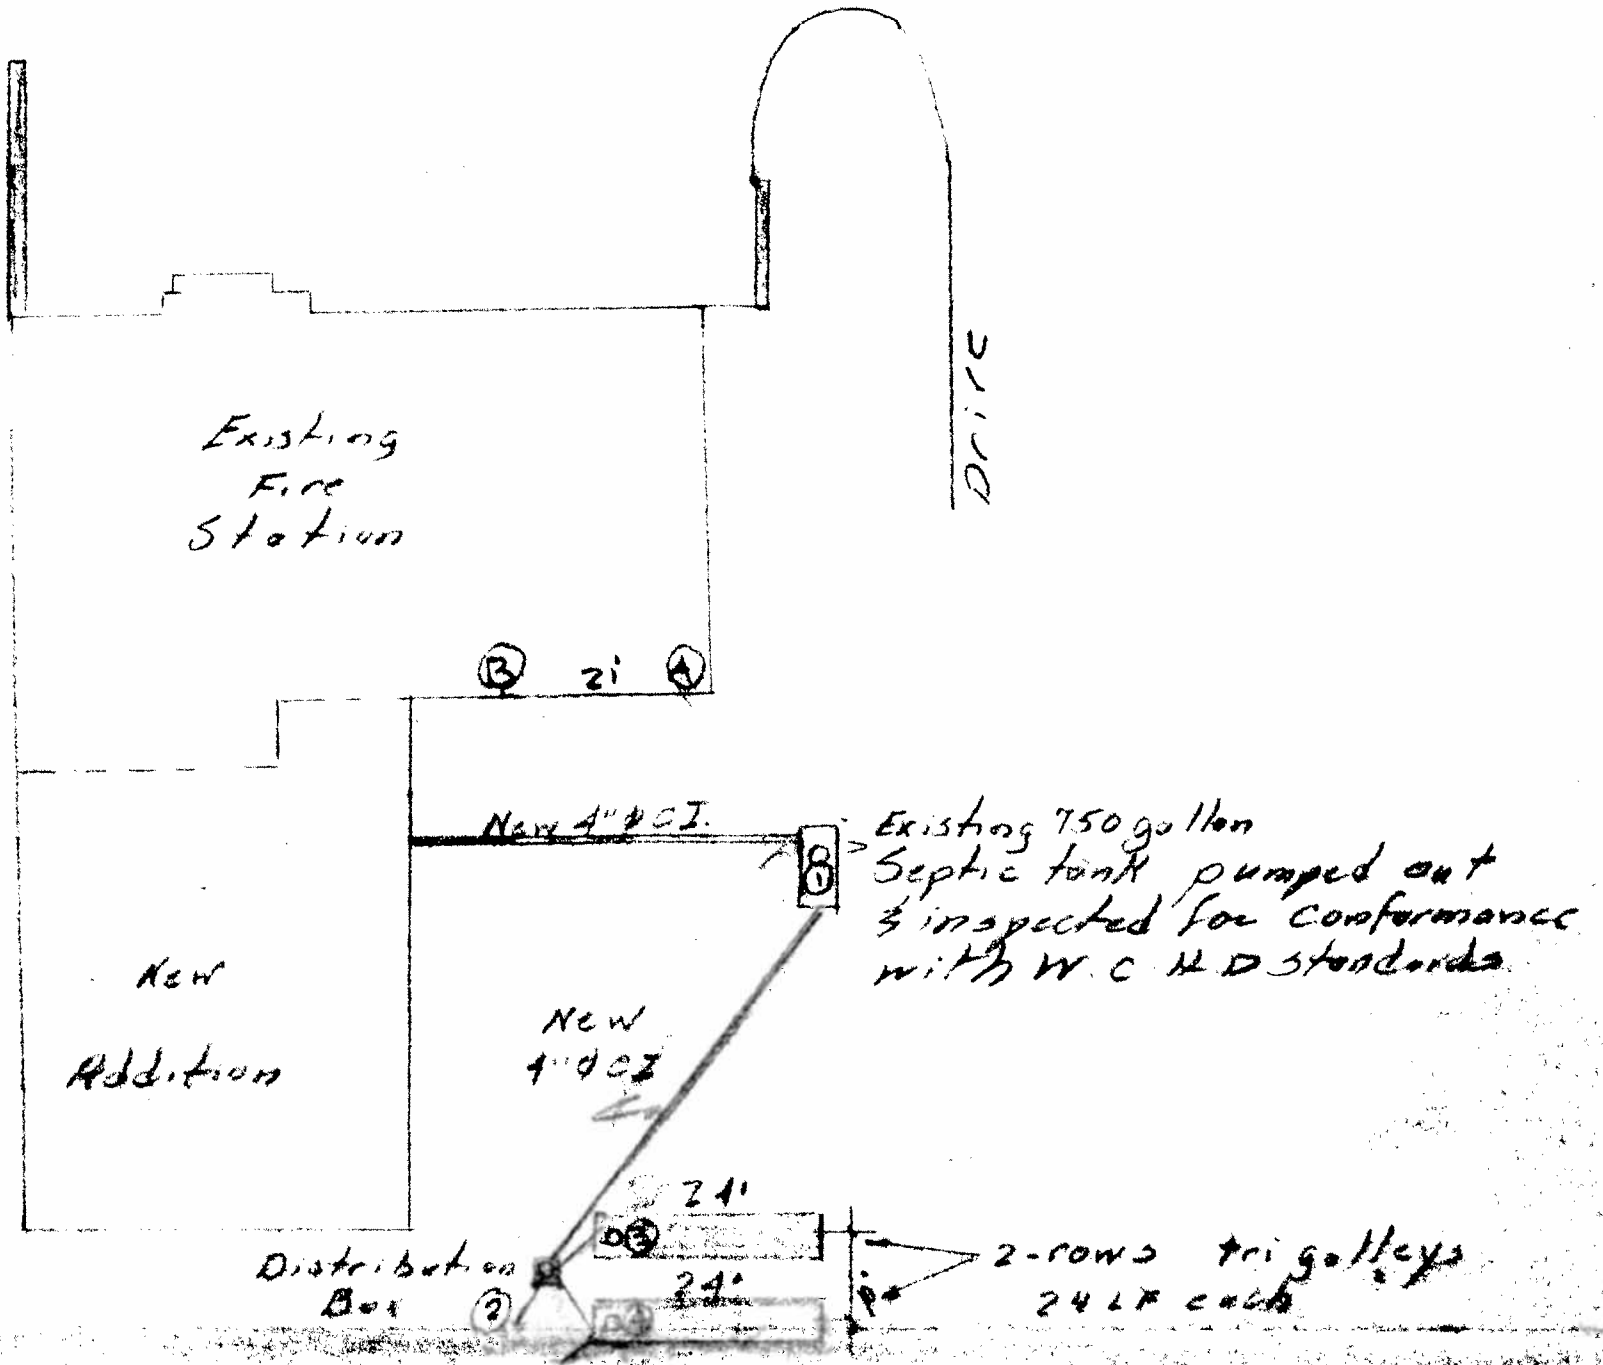 Drive
Existing
Fire
Station
B 21 A
New 4" ø C I.
1
Existing 750 gallon
Septic tank pumped out
& inspected for conformance
with W. C H D standards
New
Addition
New
4" ø CI
24'
3
Distribution
Box
2
24'
2-rows tri galleys
24 LF each